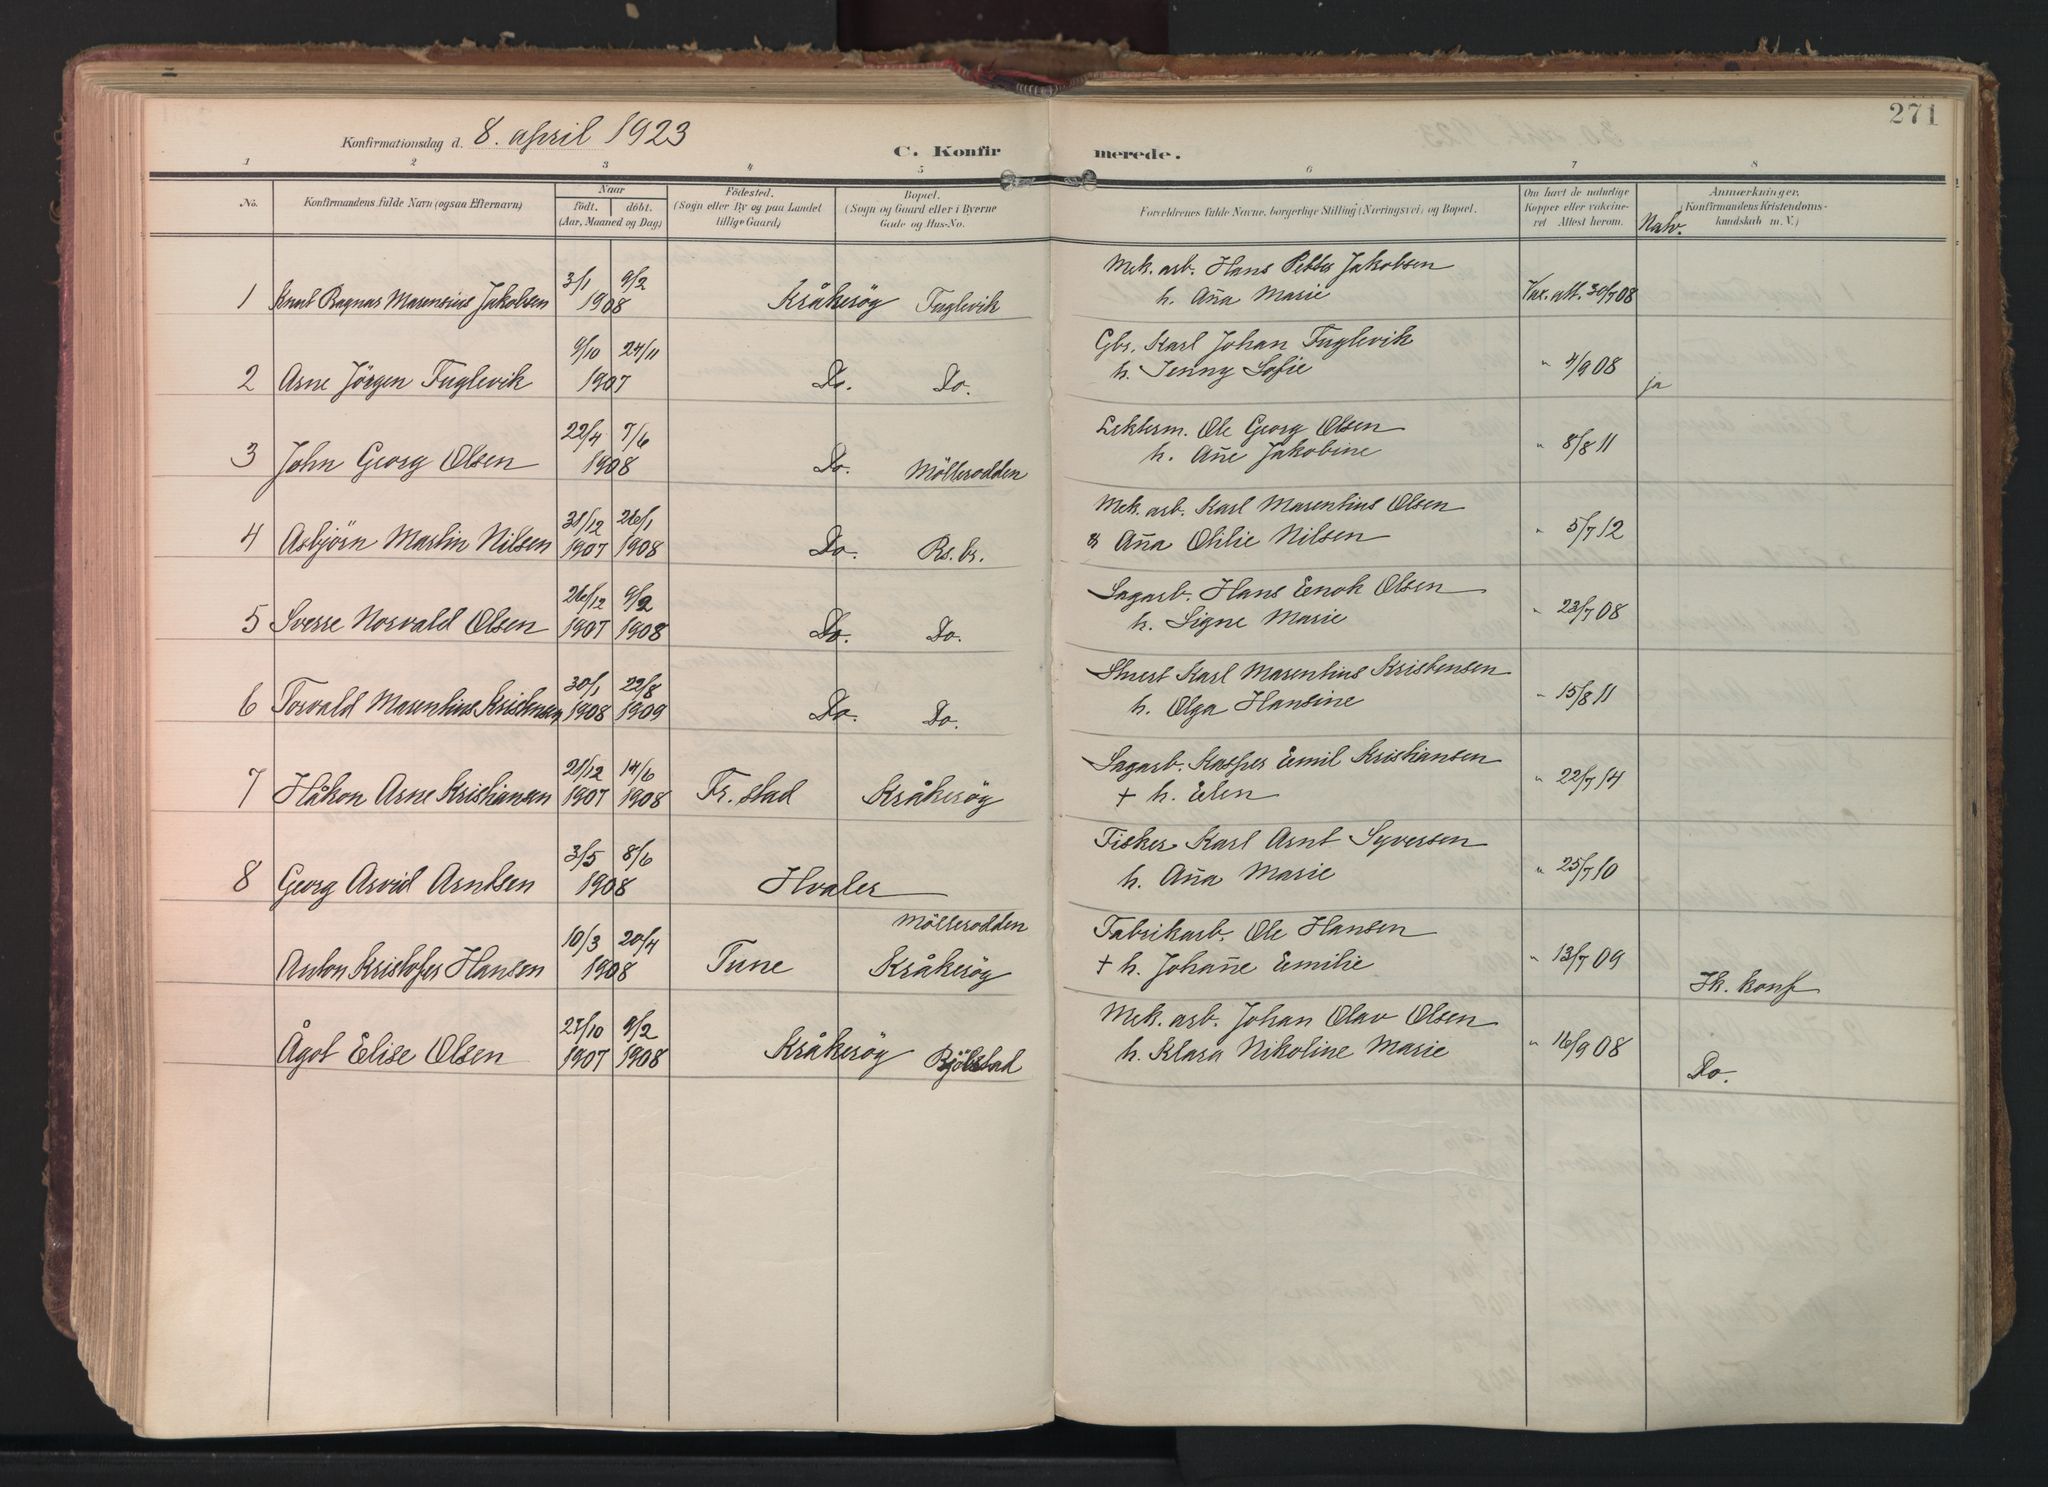 271
Konfirmationsdag d. 8. april 1923
C. Konfirmerede.
1 2 3 4 5 6 7 8
No. Konfirmandens fulde Navn (ogsaa Efternavn) Naar født. døbt. (Aar, Maaned og Dag) Fødested. (Sogn eller By og paa Landet tillige Gaard) Bopæl. (Sogn og Gaard eller i Byerne Gade og Hus-No. Forældrenes fulde Navne, borgerlige Stilling (Næringsvei) og Bopæl. Om havt de naturlige Kopper eller vakcineret Attest herom. Natv. Anmærkninger. (Konfirmandens Kristendomskundskab m. V.)
3/1 9/2 Mek. arb. Hans Petter Jakobsen
1 Knut Ragnar Marensius Jakobsen 1908 Kråkerøy Fuglevik h. Ana Marie Vax. att. 30/7 08
9/10 24/11 Gbr. Karl Johan Fuglevik
2 Arne Jörgen Fuglevik 1907 Do. Do. h. Jenny Sofie " 4/9 08 ja
22/4 7/6 Lekterm. Ole Georg Olsen
3 John Georg Olsen 1908 Do. Möllerodden h. Ane Jakobine " 8/8 11
31/12 26/1 Mek. arb. Karl Marentius Olsen
4 Asbjörn Martin Nilsen 1907 1908 Do. Rs. br. & Ana Otilie Nilsen " 5/7 12
26/12 9/2 Sagarb. Hans Enok Olsen
5 Sverre Norvald Olsen 1907 1908 Do. Do. h. Signe Marie " 23/7 08
30/1 22/8 Stuert Karl Marentius Kristensen
6 Torvald Marentius Kristensen 1908 1909 Do. Do. h. Olga Hansine " 15/8 11
21/12 14/6 Sagarb. Kasper Emil Kristiansen
7 Håkon Arne Kristiansen 1907 1908 Fr.stad Kråkerøy + h. Elen " 22/7 14
3/5 8/6 Fisker Karl Arnt Syversen
8 Georg Arvid Arntsen 1908 Hvaler h. Ana Marie " 25/7 10
10/3 20/4 Möllerodden Fabrikarb. Ole Hansen
Anton Kristofer Hansen 1908 Tune Kråkerøy + h. Johane Emilie " 13/7 09 Ik. konf
27/10 9/2 Mek. arb. Johan Olav Olsen
Ågot Elise Olsen 1907 1908 Kråkerøy Bjölstad h. Klara Nikoline Marie " 16/9 08 Do.